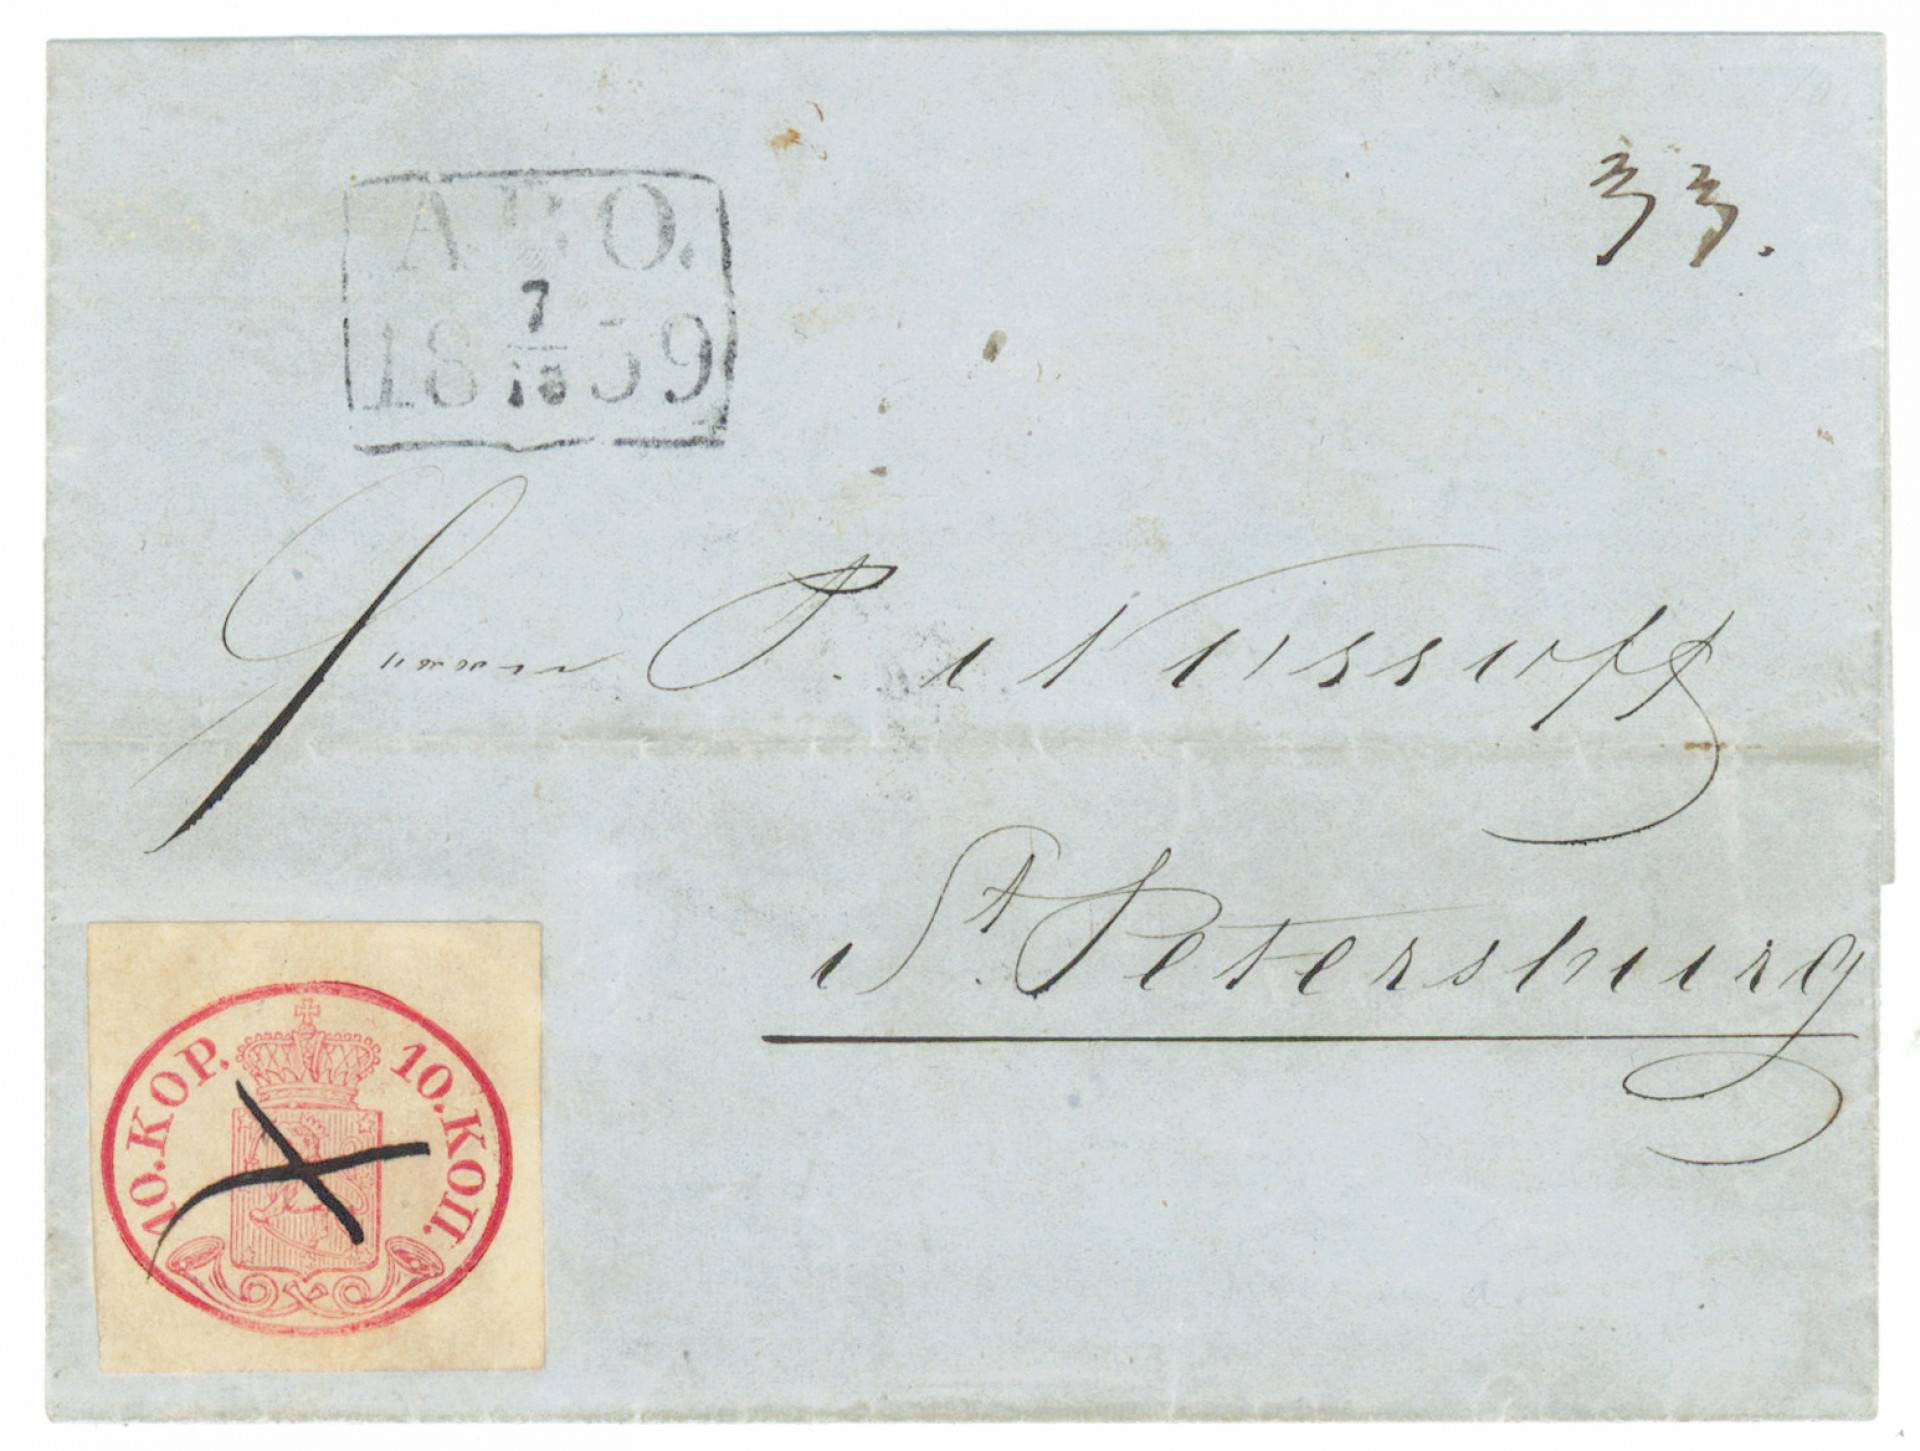 ABO.
18 7/10 59
33.
Herrn P. Nossoff
St. Petersburg
10. KOP. 10. КОП.